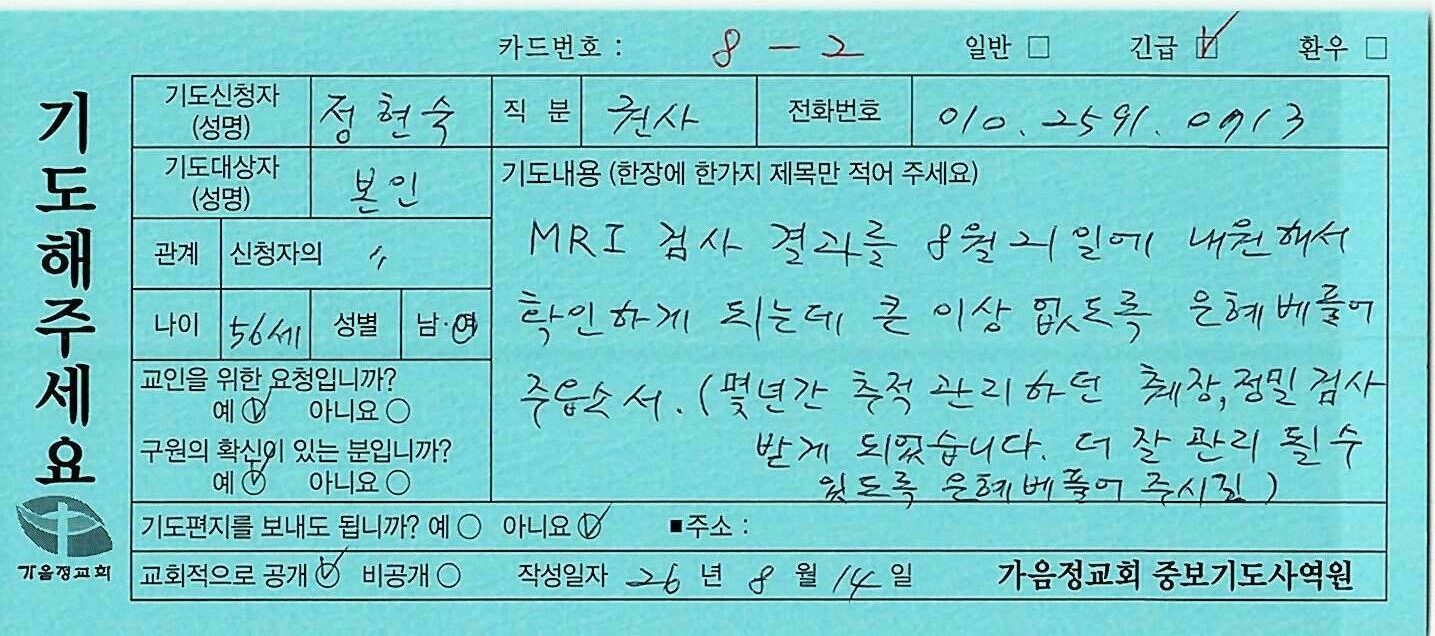 카드번호 : 8 - 2 일반 □ 긴급 ☑ 환우 □
기도해주세요
기도신청자 (성명) 정현숙 직 분 권사 전화번호 010. 2591. 0713
기도대상자 (성명) 본인
관계 신청자의 〃
나이 56세 성별 남·여
교인을 위한 요청입니까?
예 ☑ 아니요 ○
구원의 확신이 있는 분입니까?
예 ☑ 아니요 ○
기도내용 (한장에 한가지 제목만 적어 주세요)
MRI 검사 결과를 8월 21일에 내원해서
확인하게 되는데 큰 이상 없도록 은혜베풀어
주옵소서. (몇년간 추적 관리하던 췌장, 정밀 검사
받게 되었습니다. 더 잘 관리 될 수
있도록 은혜베풀어 주시길)
기도편지를 보내도 됩니까? 예 ○ 아니요 ☑ ■주소 :
교회적으로 공개 ☑ 비공개 ○ 작성일자 26 년 8 월 14 일 가음정교회 중보기도사역원
가음정교회